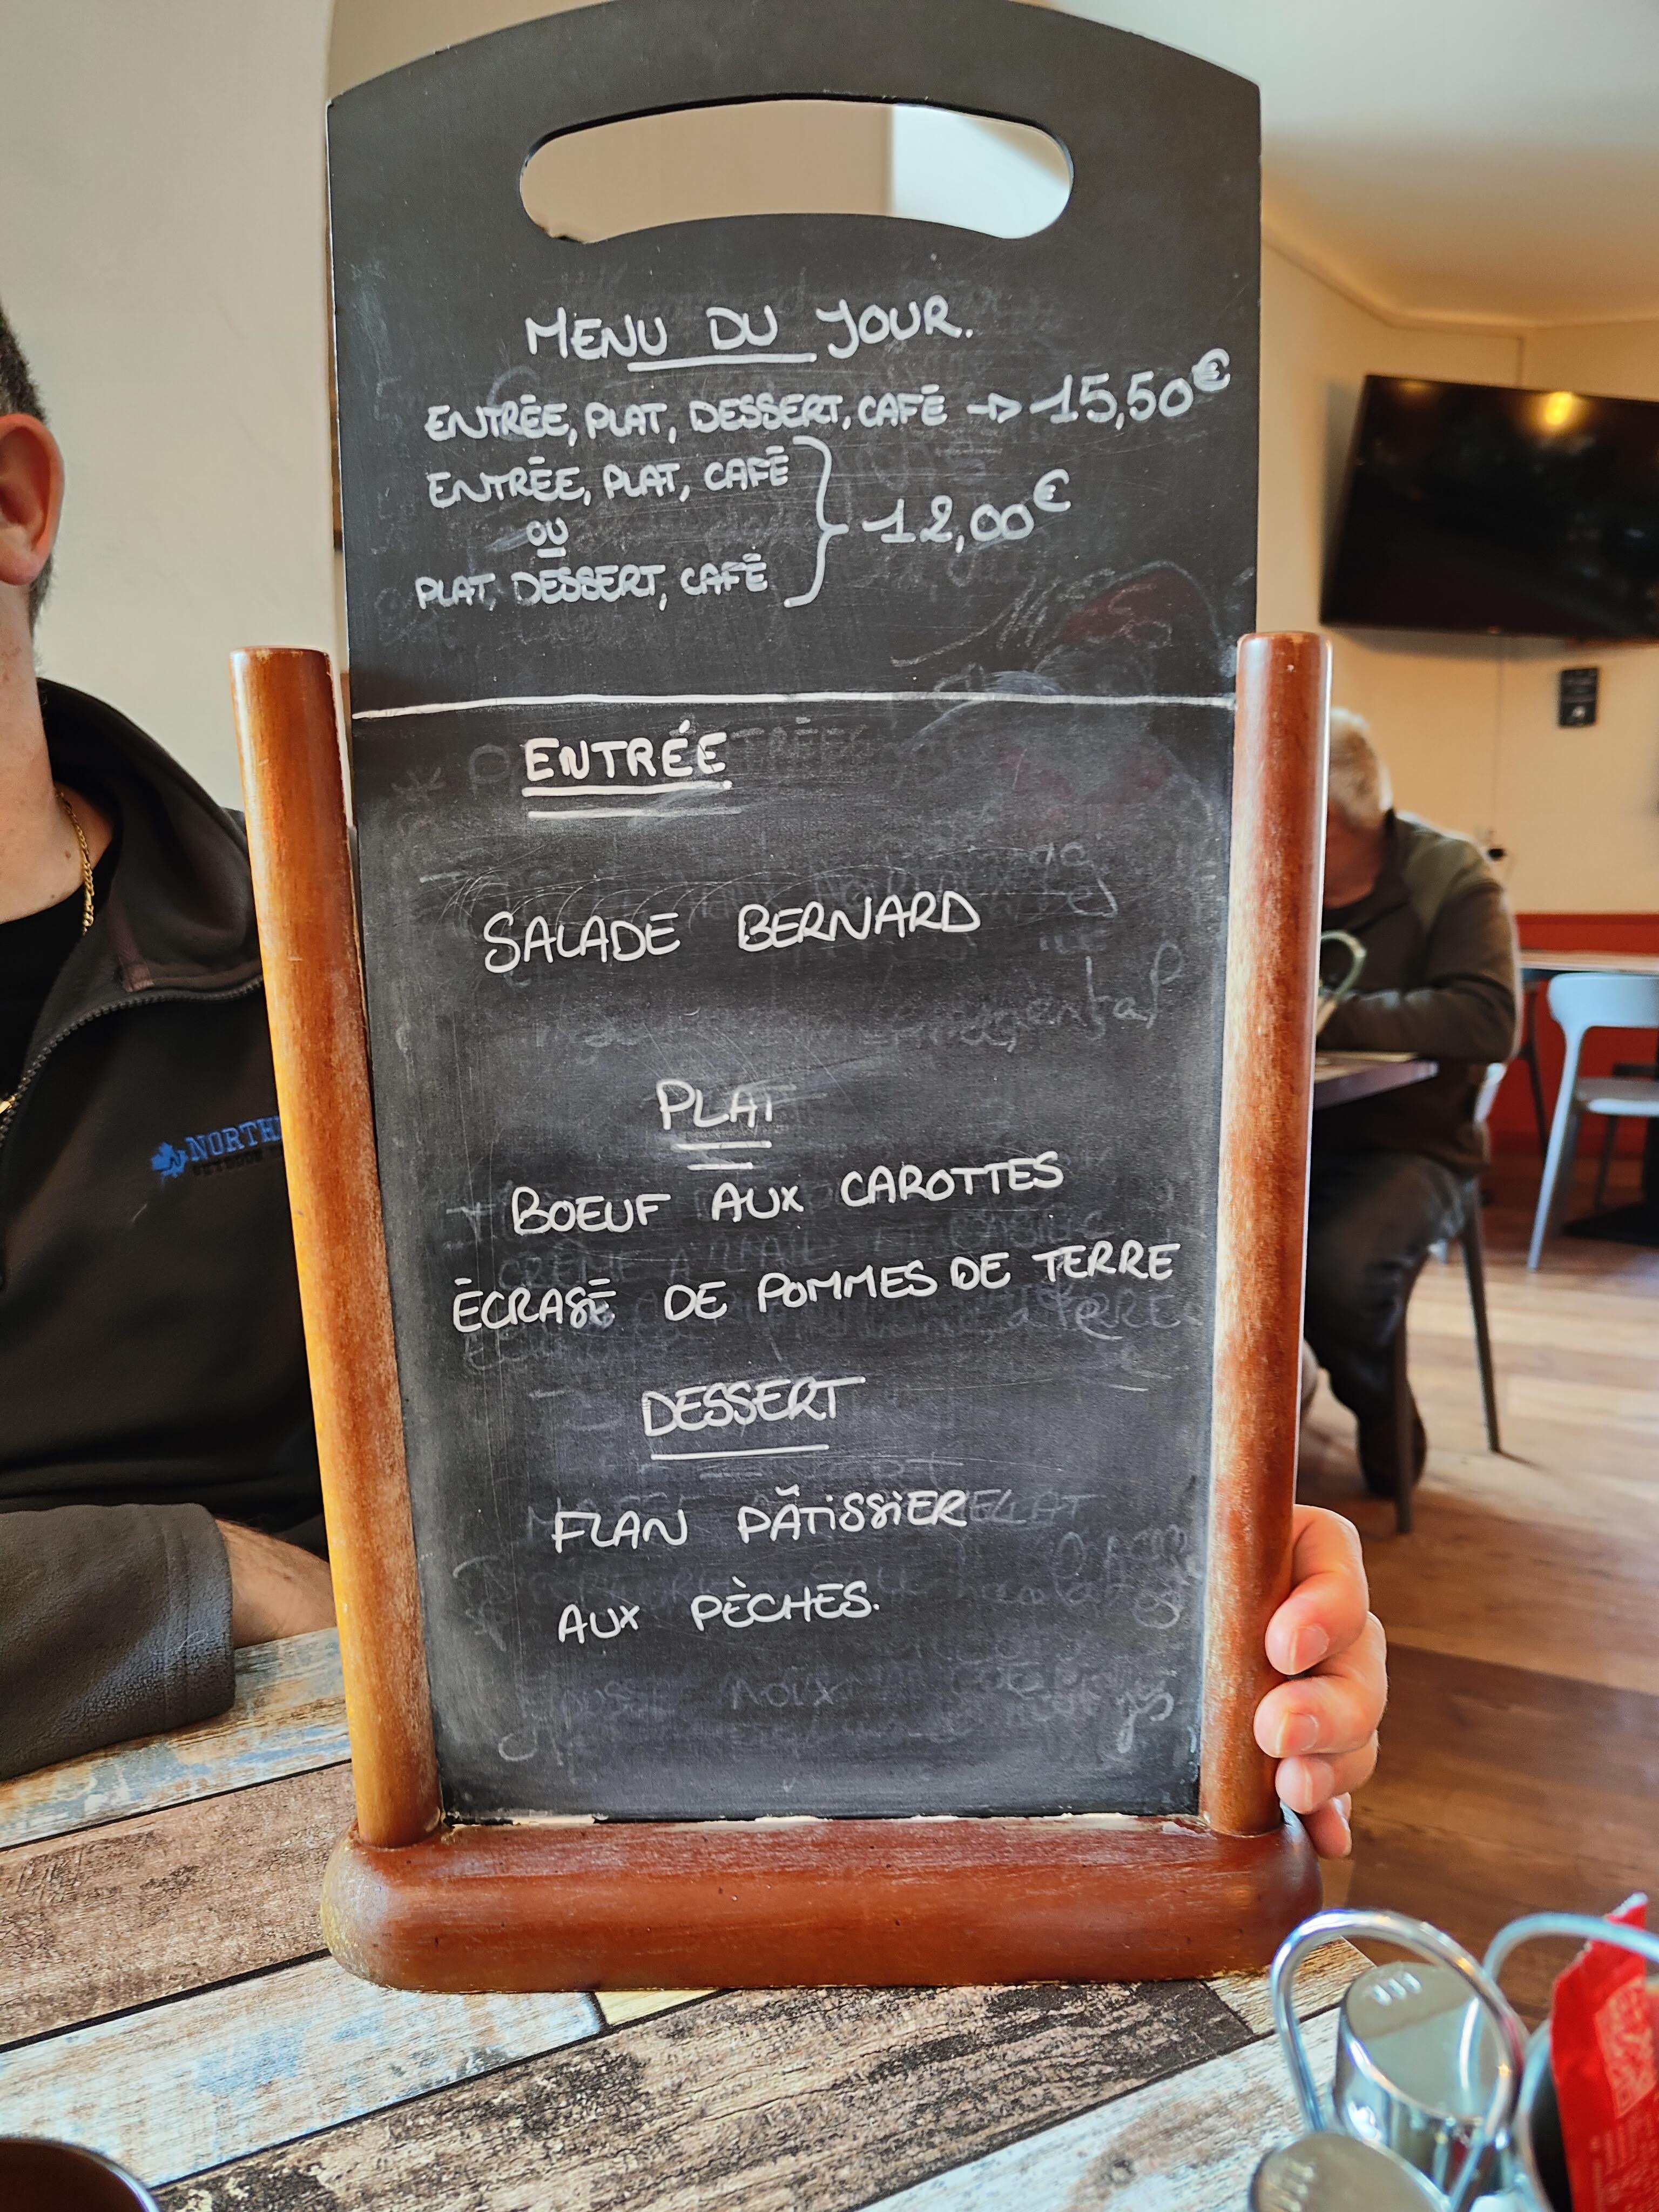 MENU DU JOUR.
ENTRÉE, PLAT, DESSERT, CAFÉ → 15,50€
ENTRÉE, PLAT, CAFÉ
OU
PLAT, DESSERT, CAFÉ
12,00€
ENTRÉE
SALADE BERNARD
PLAT
BOEUF AUX CAROTTES
ÉCRASÉ DE POMMES DE TERRE
DESSERT
FLAN PÂTISSIER
AUX PÈCHES.